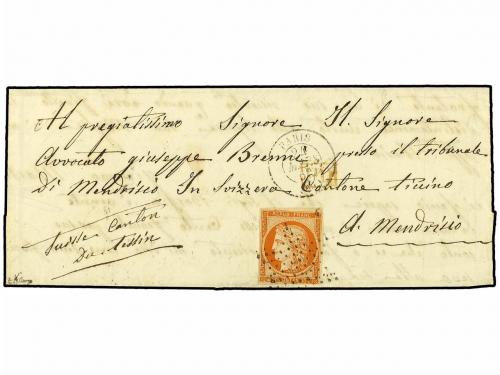 Al pregiatissimo Signore Il Signore
Avvocato giuseppe Brenni preso il tribunale
Di Mendrisio In Svizzera Cantone ticino
A. Mendrisio
Suisse Canton
Du Tessin
PARIS
REPUB. FRANC.